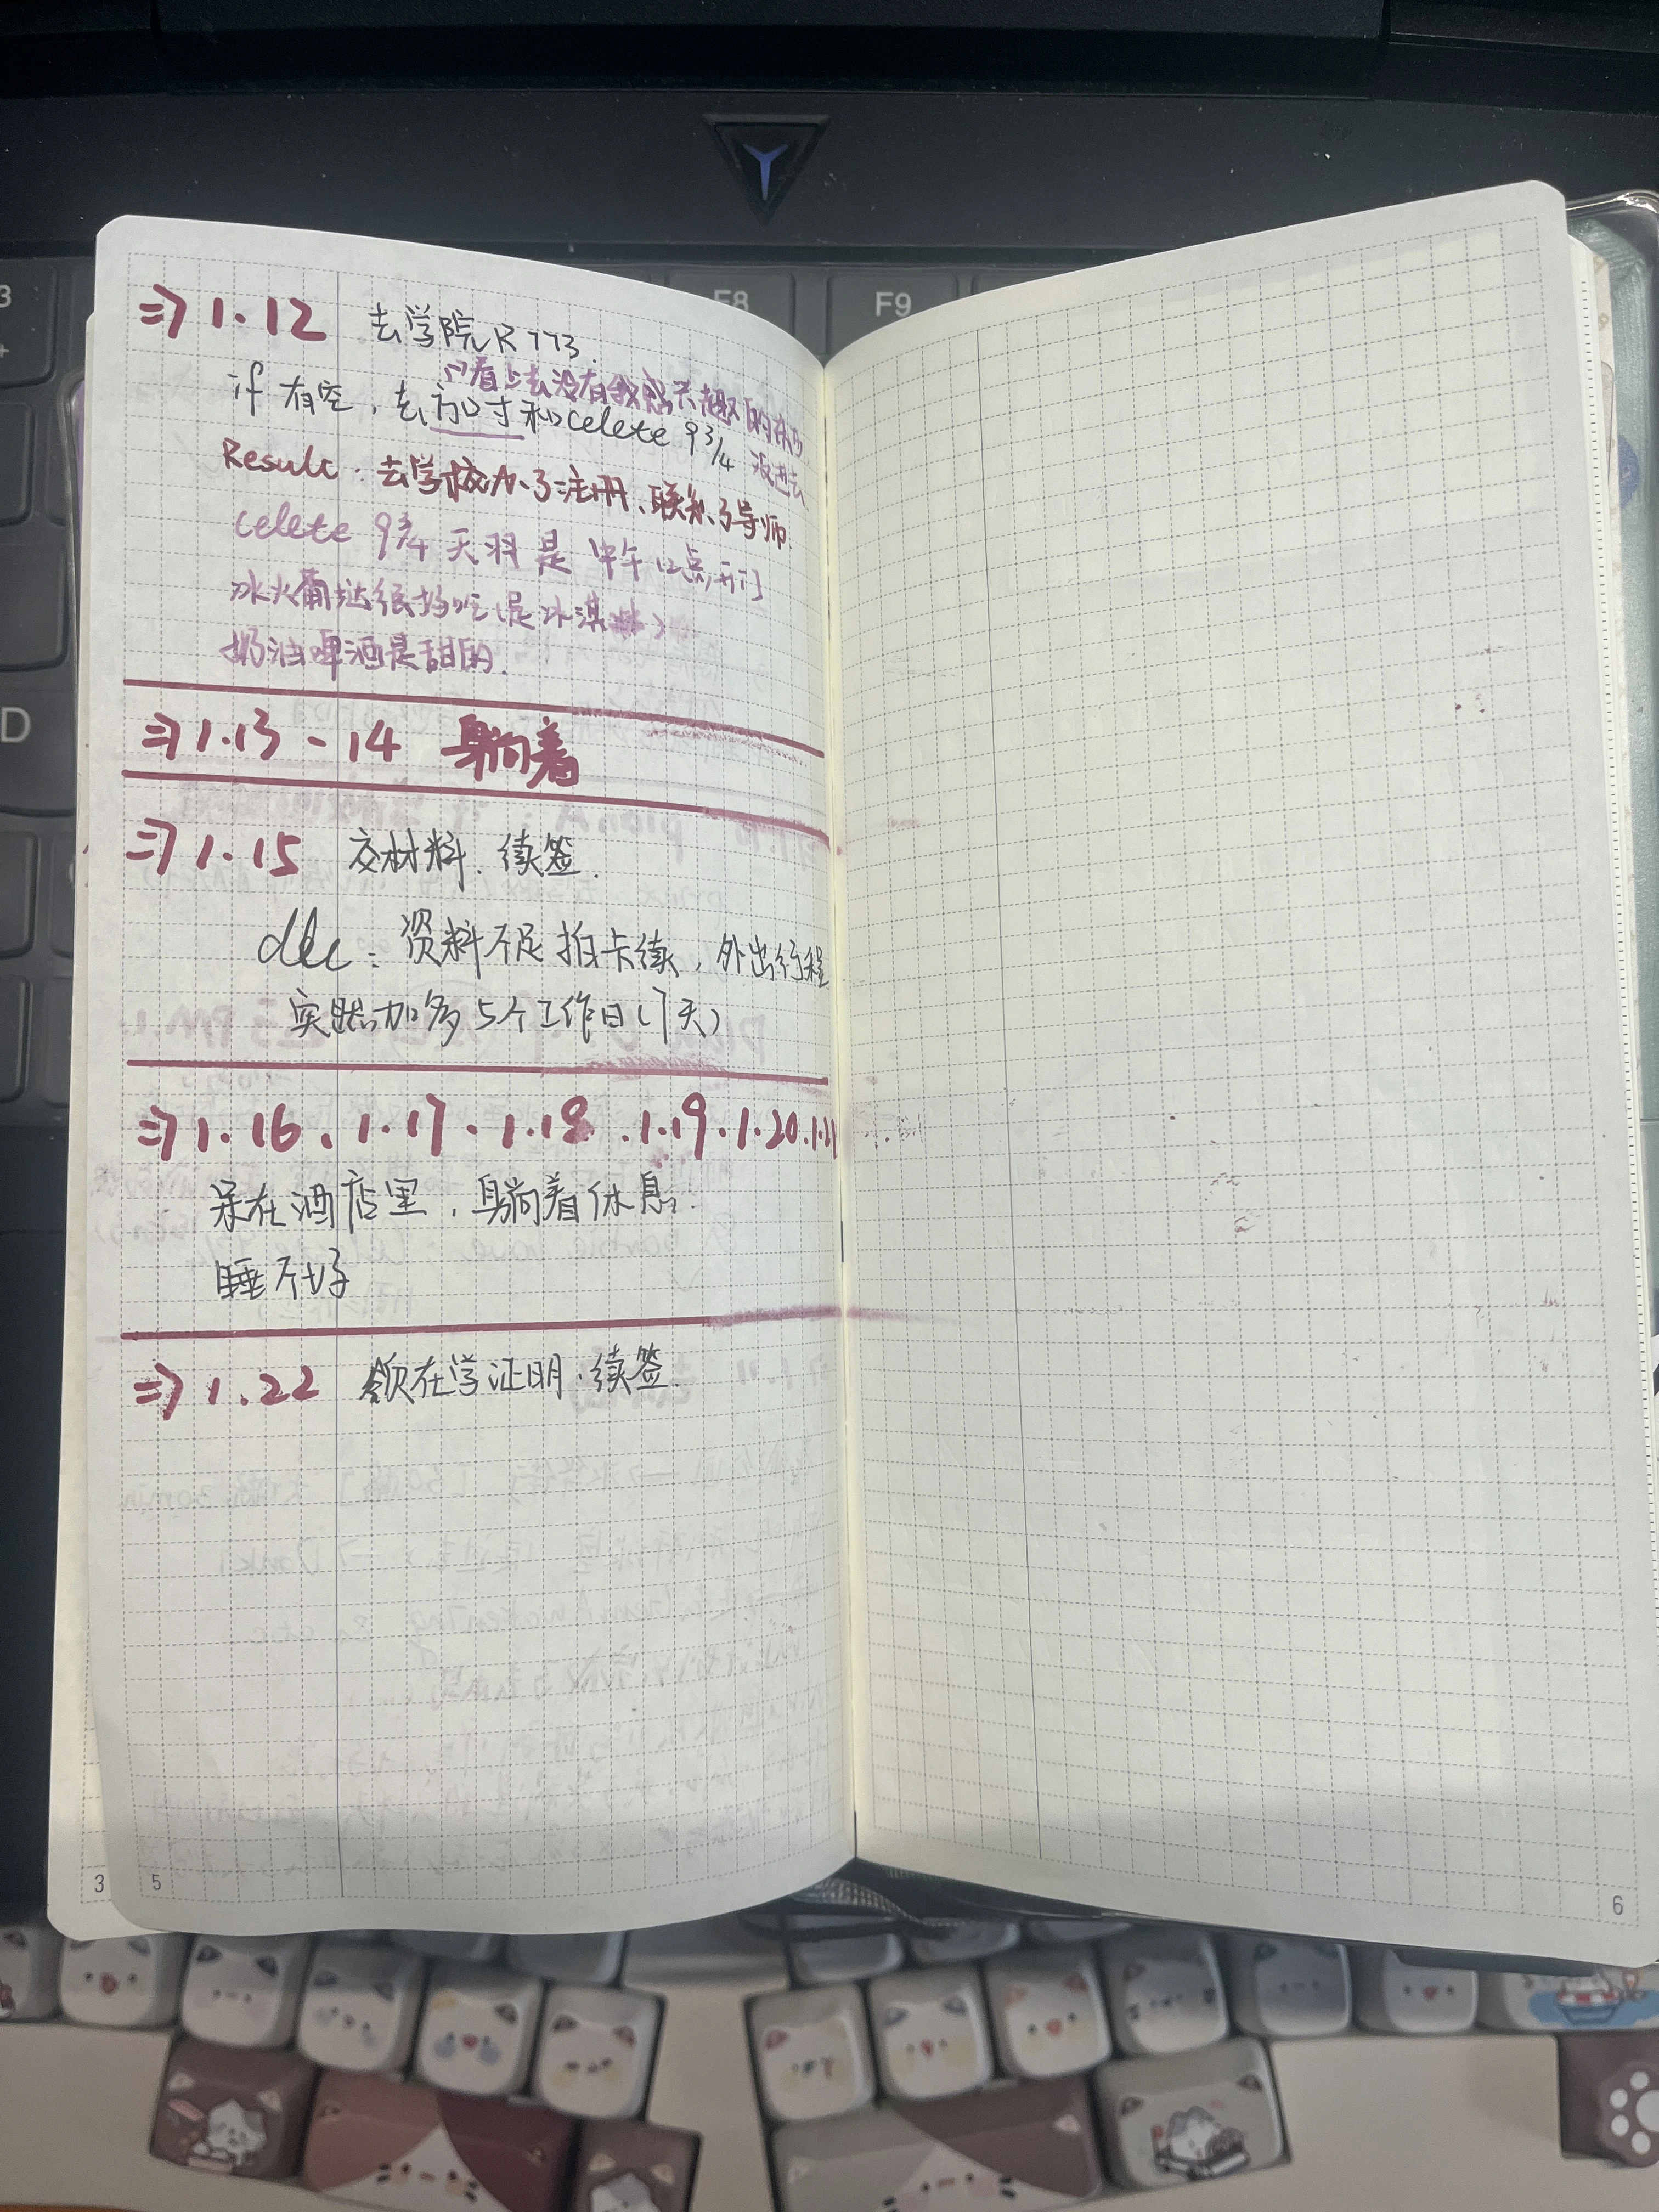 F8
F9
D
⇒ 1.12 去学院R773.
门看上去没有我感兴趣的东西
if 有空，去方口寸和celete 9¾ 没进去
Result：去学校办了注册、联系了导师.
celete 9¾ 天羽是 中午12点开门
冰火葡挞很好吃（是冰淇淋）
奶油啤酒是甜的.
⇒ 1.13 - 14 躺着
⇒ 1.15 交材料、续签.
资料不足拍卡续，外出行程
实践加多5个工作日（7天）
⇒ 1.16、1.17、1.18、1.19、1.20、1.21
呆在酒店里，躺着休息.
睡不好
⇒ 1.22 领在学证明、续签.
3
5
6